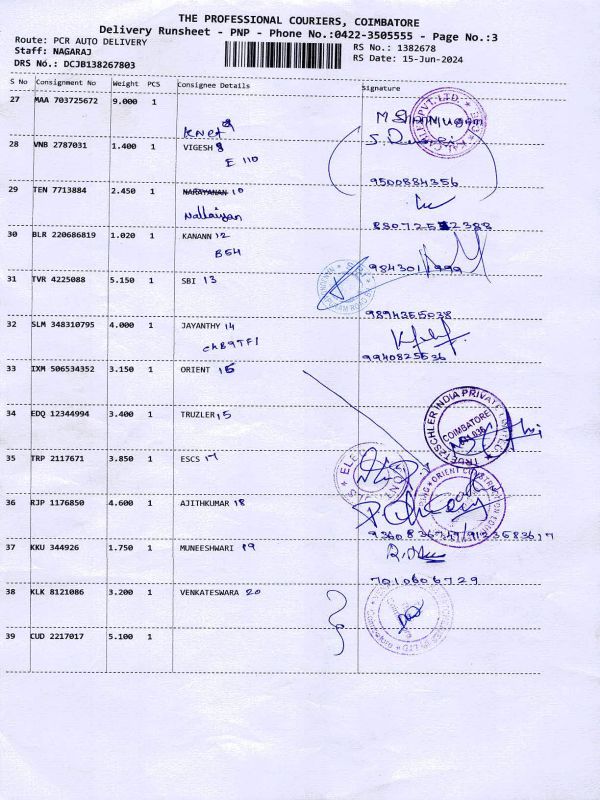 THE PROFESSIONAL COURIERS, COIMBATORE
Delivery Runsheet - PNP - Phone No.:0422-3505555 - Page No.:3
Route: PCR AUTO DELIVERY
Staff: NAGARAJ
DRS No.: DCJB138267803
RS No.: 1382678
RS Date: 15-Jun-2024
S No Consignment No Weight PCS Consignee Details Signature
27 MAA 703725672 9.000 1
KNCA 9
28 VNB 2787031 1.400 1 VIGESH 8
E 110
9500884356
29 TEN 7713884 2.450 1 NARAYANAN 10
Nallaiyan
30 BLR 220686819 1.020 1 KANANN 12
B54
31 TVR 4225088 5.150 1 SBI 13
9894355038
32 SLM 348310795 4.000 1 JAYANTHY 14
9940825536
33 IXM 506534352 3.150 1 ORIENT 15
34 EDQ 12344994 3.400 1 TRUZLER 15
TRUETZSCHLER INDIA PRIVATE LIMITED
COIMBATORE
35 TRP 2117671 3.850 1 ESCS 17
36 RJP 1176850 4.600 1 AJITHKUMAR 18
37 KKU 344926 1.750 1 MUNEESHWARI 19
7010606729
38 KLK 8121086 3.200 1 VENKATESWARA 20
39 CUD 2217017 5.100 1